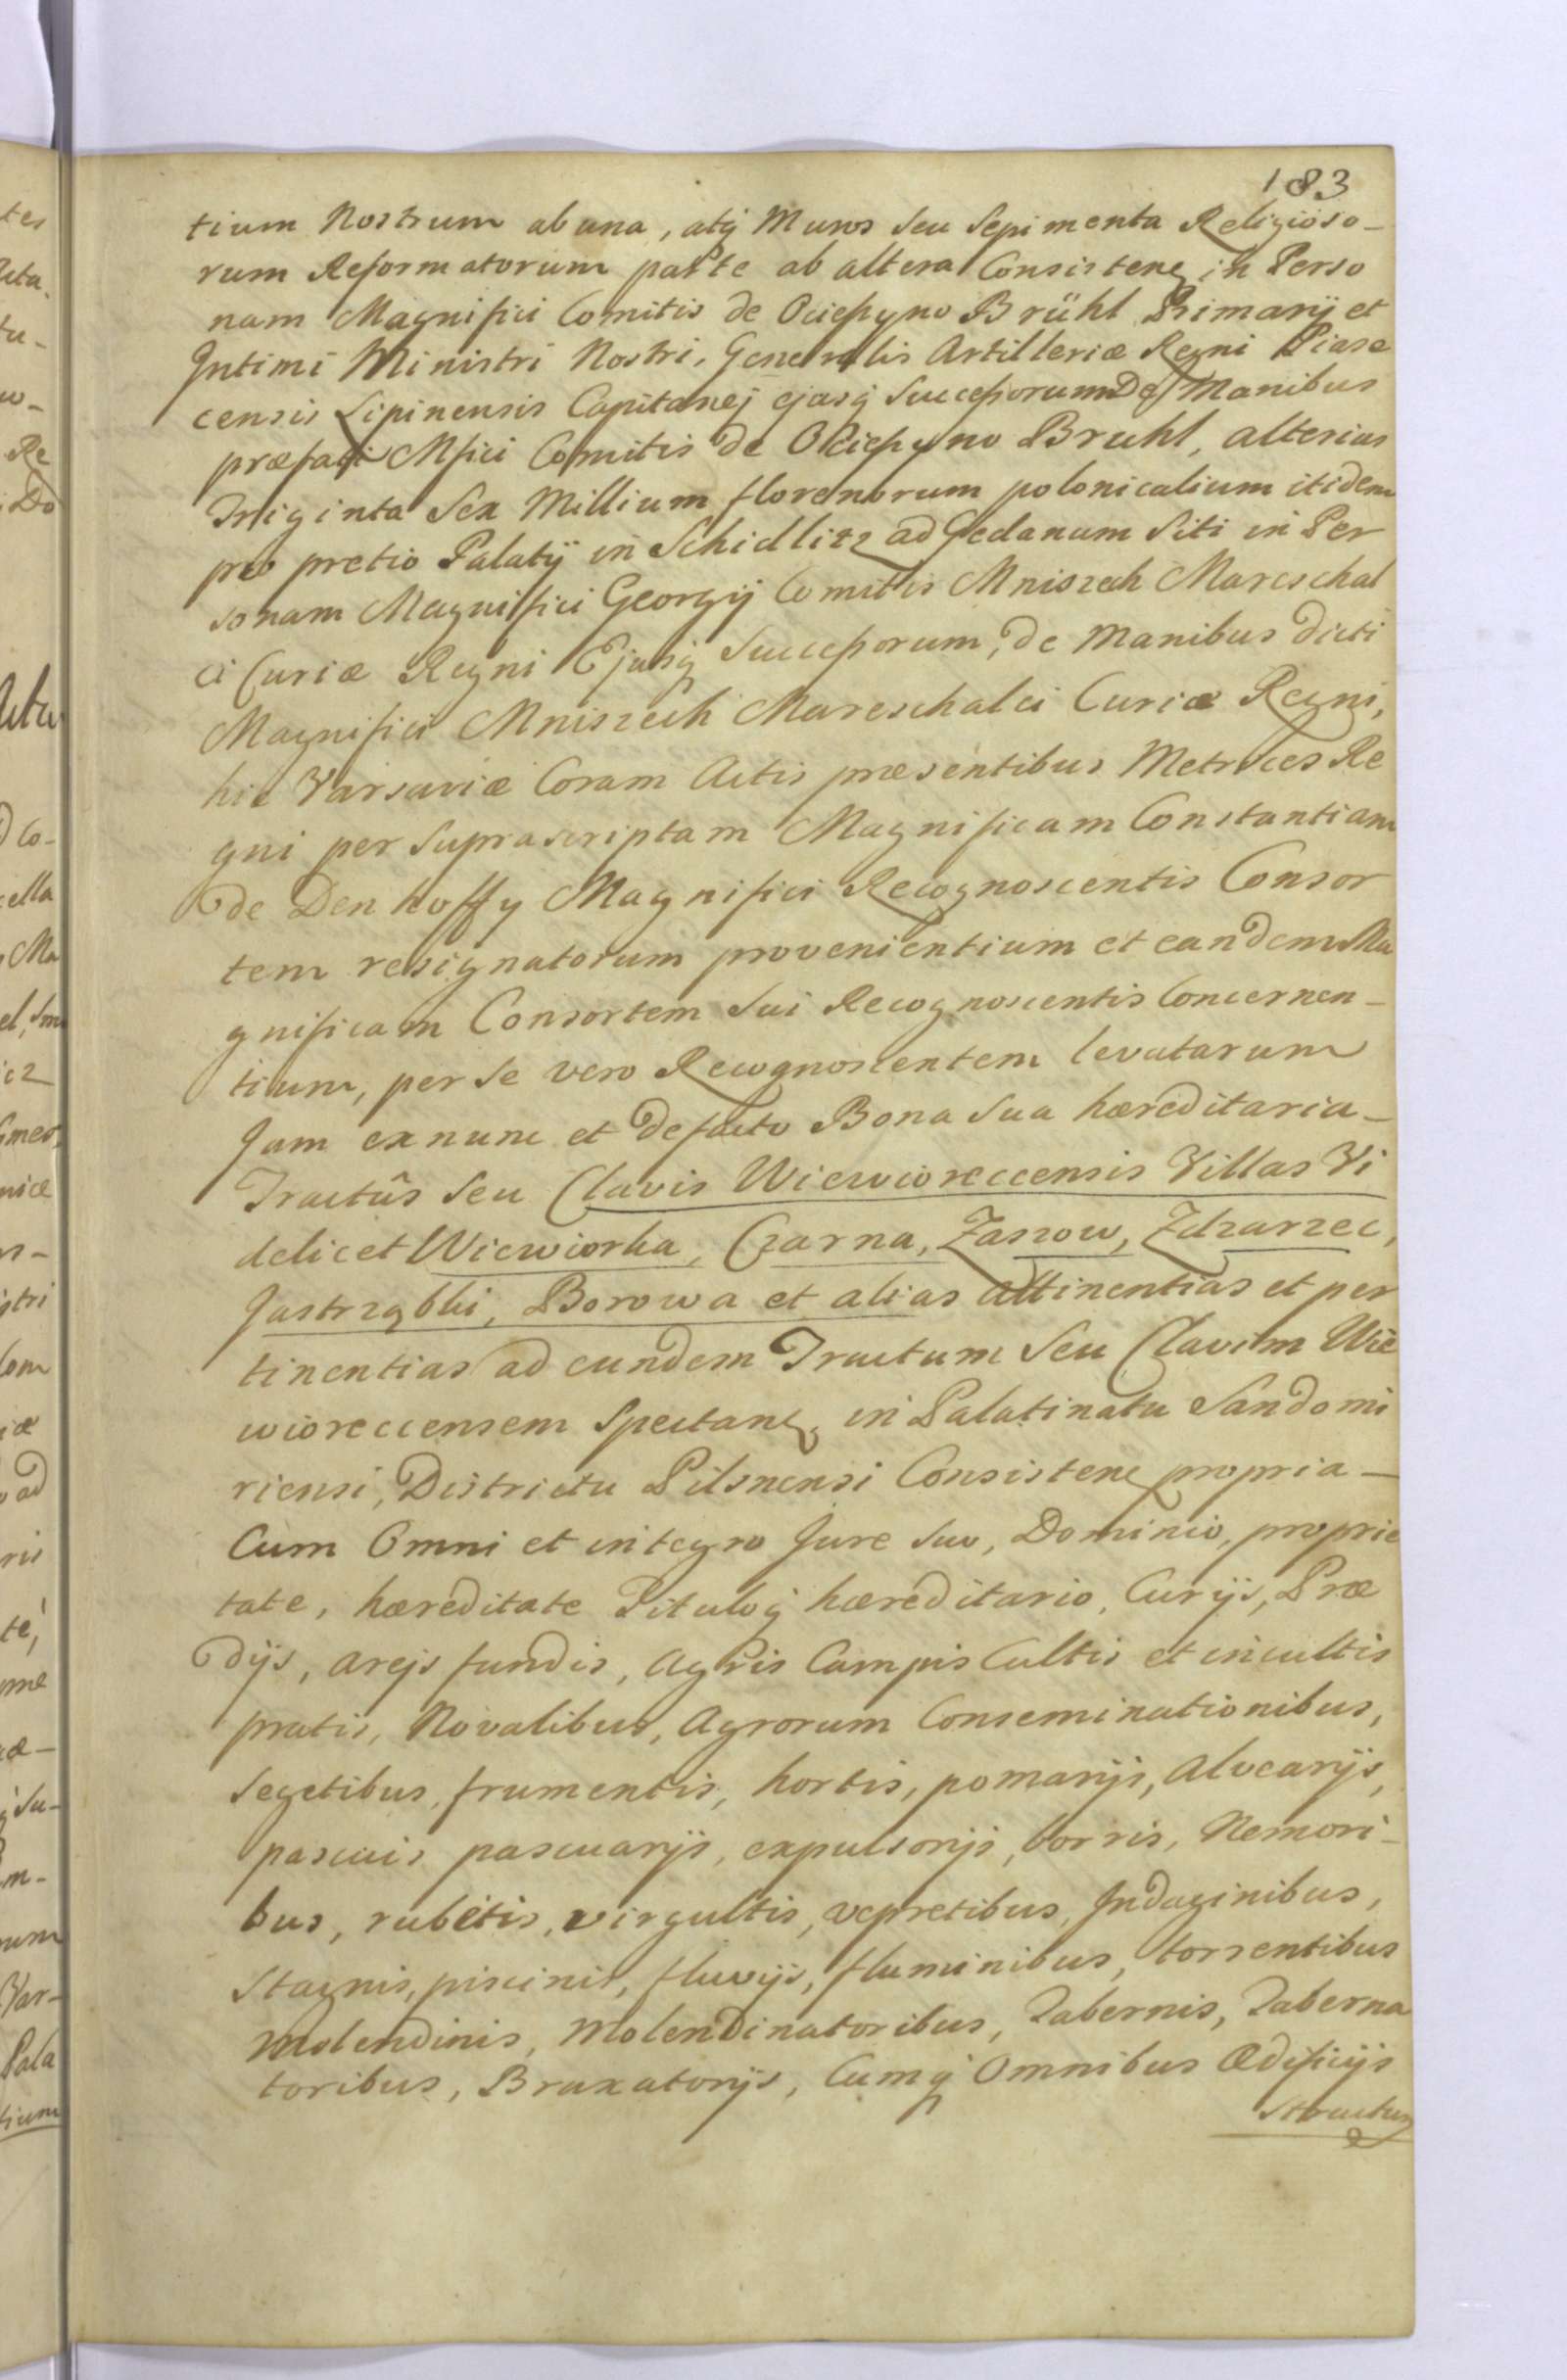 183
tium Nostrum ab una, atq́ Muros seu Sepimenta Religioso-
rum Reformatorum parte ab altera Consisten in Perso
nam Magnifici Comitis de Ocieszyno Brühl Primarÿ et
Intimi Ministri Nostri, Generalis Artilleriæ Regni Piase
censis Lipinensis Capitanej ejusq́ Successorum De Manibus
præfati Mfici Comitis de Ocieszyno Bruhl, alterius
Triginta Sex Millium florenorum polonicalium itidem
pro pretio Palatÿ in Schidlitz ad Gedanum Siti in Per
sonam Magnifici Georgÿ Comitis Mniszech Mareschal
ci Curiæ Regni Ejusq́ Successorum, de Manibus dicti
Magnifici Mniszech Mareschalci Curiæ Regni,
hic Varsaviæ Coram Actis præsentibus Metrices Re
gni per Suprascriptam Magnificam Constantiam
de Denhoffy Magnifici Recognoscentis Consor
tem resignatorum provenientium et eandem Ma
gnificam Consortem Sui Recognoscentis Concernen-
tium, per Se vero Recognoscentem levatarum
Jam ex nunc et de facto Bona Sua hæreditaria-
Tractûs Seu Clavis Wiewioreccensis Villas Vi
delicet Wiewiorka, Czarna, Zassow, Zdzarzec,
Jastrząbki, Borowa et alias attinentias et per
tinentias ad eundem Tractum Seu Clavim Wie
wioreccensem Spectan, in Palatinatu Sandomi
riensi, Districtu Pilsnensi Consisten propria-
Cum Omni et integro Jure Suo, Dominio, proprie
tate, hæreditate Tituloq́ hæreditario, Curÿs, Præ
dÿs, arejs fundis, agris Campis Cultis et incultis
pratis, Novalibus, Agrorum Conseminationibus,
Segetibus, frumentis, hortis, pomarÿs, Alvearÿs,
pascuis pascuarÿs, expulsorÿs, borris, Nemori-
bus, rubetis, virgultis, vepretibus, Indaginibus,
Stagnis, piscinis, fluvÿs, fluminibus, torrentibus
Molendinis, Molendinatoribus, Tabernis, Taberna
toribus, Braxatorÿs, Cumq́ Omnibus Ædificÿs
Structur